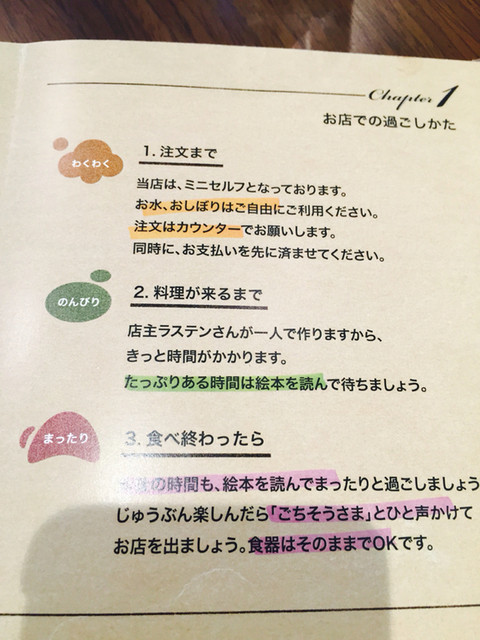 Chapter 1
お店での過ごしかた
わくわく
1. 注文まで
当店は、ミニセルフとなっております。
お水、おしぼりはご自由にご利用ください。
注文はカウンターでお願いします。
同時に、お支払いを先に済ませてください。
のんびり
2. 料理が来るまで
店主ラステンさんが一人で作りますから、
きっと時間がかかります。
たっぷりある時間は絵本を読んで待ちましょう。
まったり
3. 食べ終わったら
の時間も、絵本を読んでまったりと過ごしましょう
じゅうぶん楽しんだら「ごちそうさま」とひと声かけて
お店を出ましょう。食器はそのままでOKです。